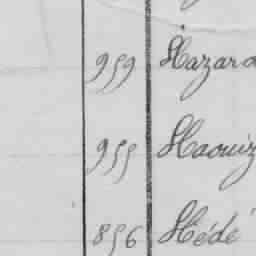 959 Hazard
955 Haouiz
856 Hédé